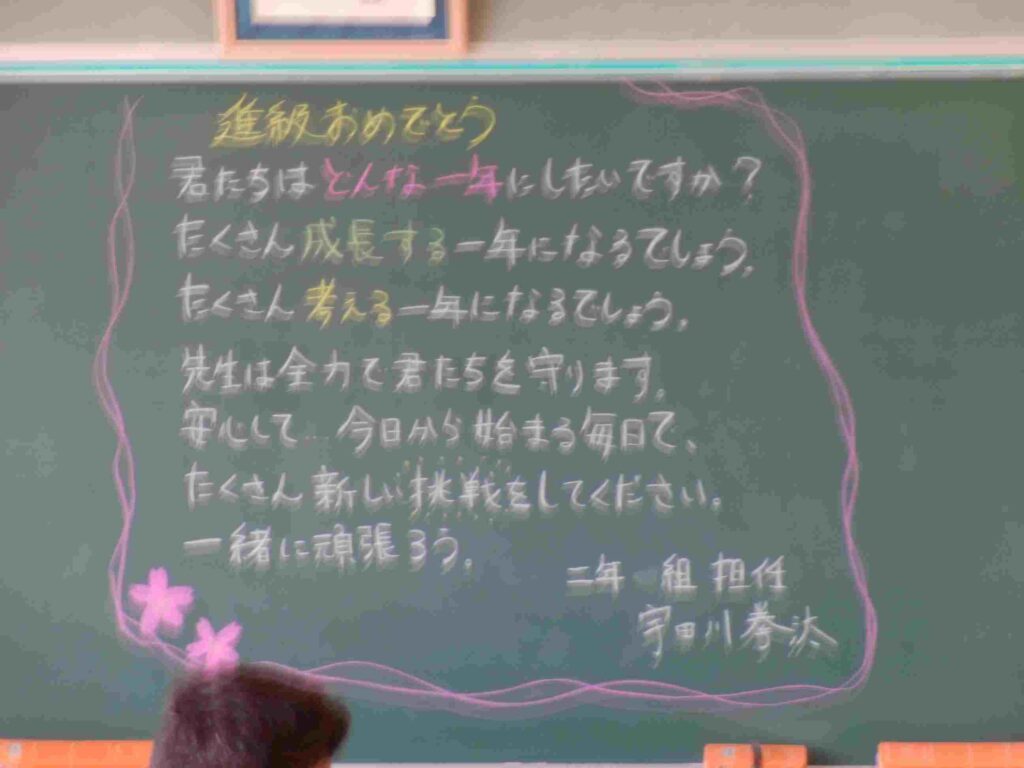 進級おめでとう
君たちはどんな一年にしたいですか？
たくさん成長する一年になるでしょう。
たくさん考える一年になるでしょう。
先生は全力で君たちを守ります。
安心して…今日から始まる毎日で、
たくさん新しい挑戦をしてください。
一緒に頑張ろう。
二年 組 担任
宇田川拳汰